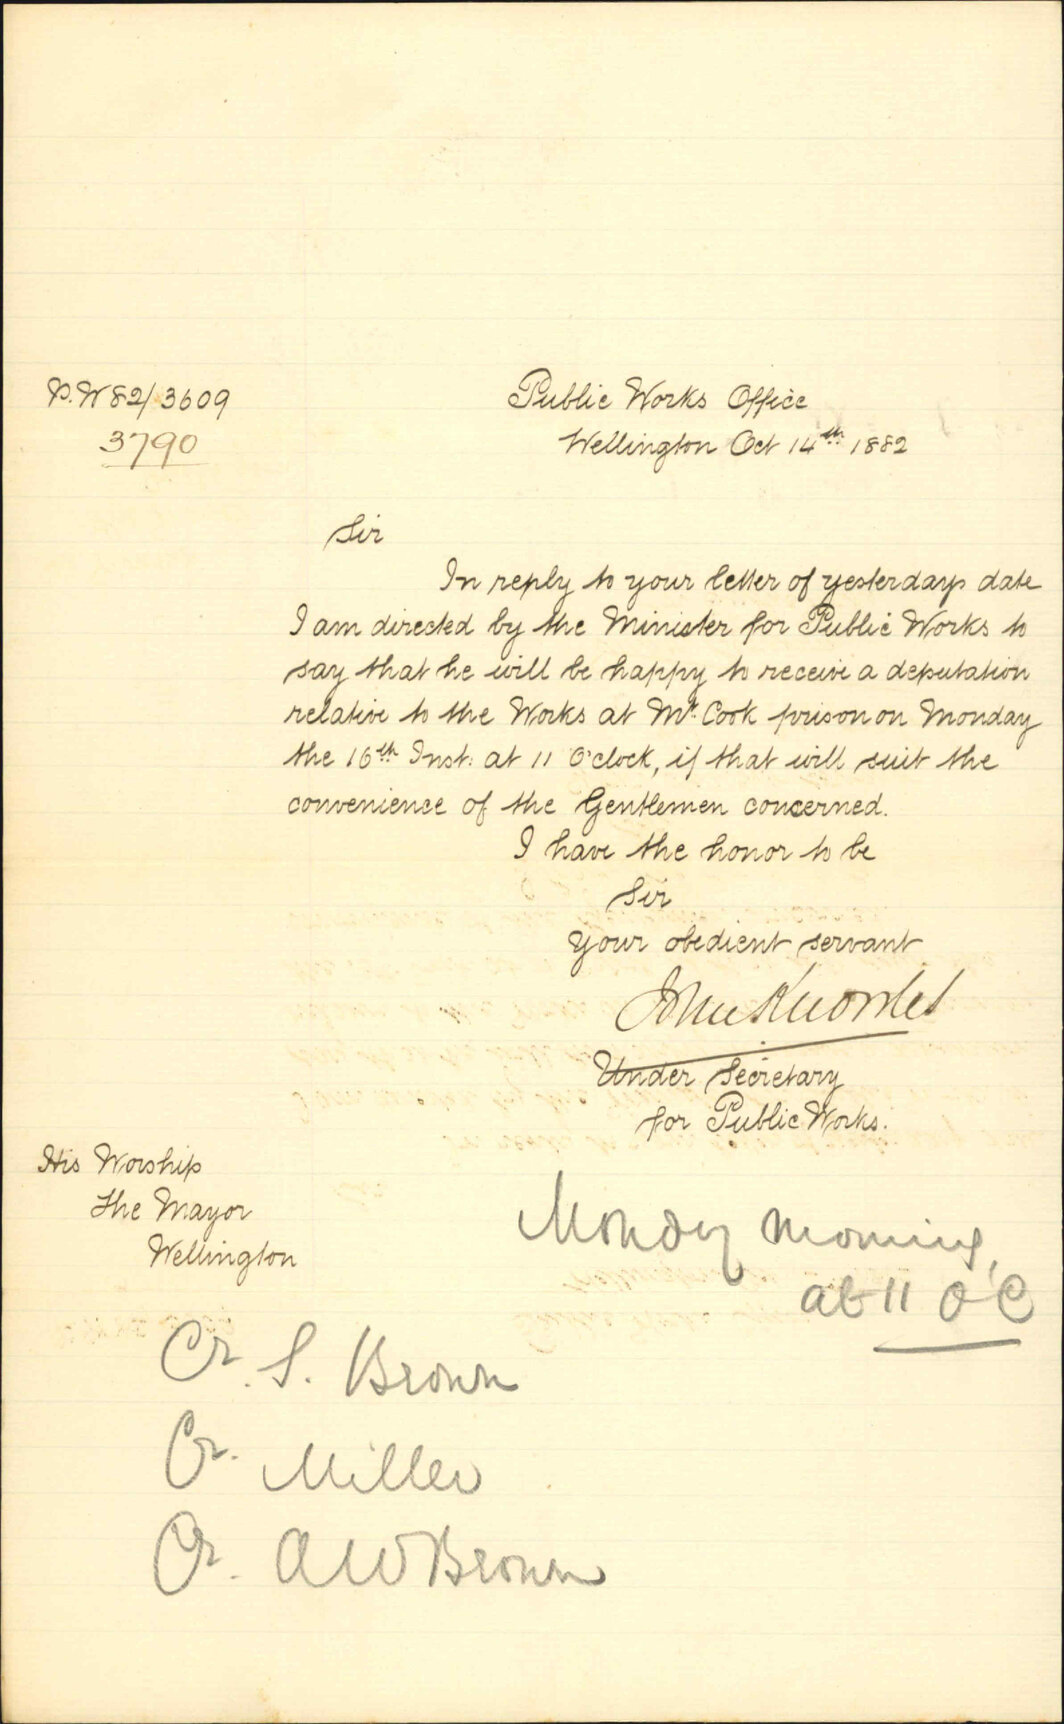 P.W 82/3609
3790
Public Works Office
Wellington Oct 14th 1882
Sir
In reply to your letter of yesterdays date
I am directed by the Minister for Public Works to
say that he will be happy to receive a deputation
relative to the Works at Mt. Cook prison on Monday
the 16th Inst: at 11 O'clock, if that will suit the
convenience of the Gentlemen concerned.
I have the honor to be
Sir
Your obedient servant
John Knowles
Under Secretary
for Public Works.
His Worship
The Mayor
Wellington
Monday morning,
at 11 O'C
Cr. S. Brown
Cr. Miller
Cr. A W Brown